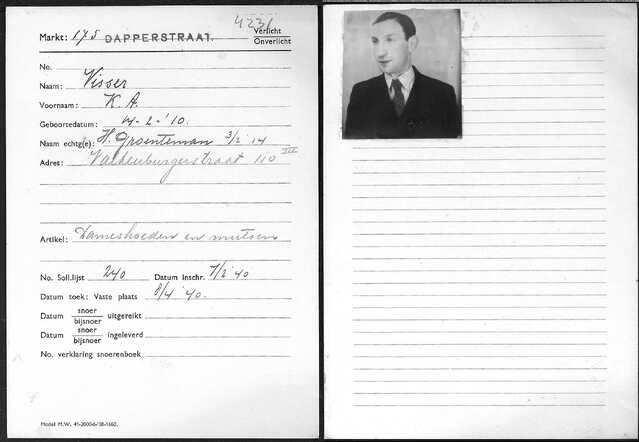 4231
Markt: 175 DAPPERSTRAAT. Verlicht
Onverlicht
No.
Naam: Visser
Voornaam: K. A.
Geboortedatum: 14-2-'10.
Naam echtg(e): H. Groenteman 3/2 '14
Adres: Valkenburgerstraat 110 III
Artikel: Dameshoeden en mutsen
No. Soll.lijst 240 Datum Inschr. 7/2 '40
Datum toek: Vaste plaats 8/4 '40.
Datum snoer/bijsnoer uitgereikt
Datum snoer/bijsnoer ingeleverd
No. verklaring snoerenboek
Model M.W. 41-2000-6-'38-1662.